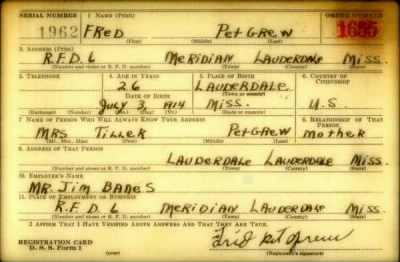 SERIAL NUMBER 1. NAME (Print) ORDER NUMBER
1962 FRED PETGREW 1685
(First) (Middle) (Last)
2. ADDRESS (Print)
R.F.D. 6 MERIDIAN LAUDERDALE MISS.
(Number and street or R. F. D. number) (Town) (County) (State)
3. TELEPHONE 4. AGE IN YEARS 5. PLACE OF BIRTH 6. COUNTRY OF CITIZENSHIP
26 LAUDERDALE
DATE OF BIRTH (Town or county)
JULY 3, 1914 MISS. U.S.
(Exchange) (Number) (Mo.) (Day) (Yr.) (State or country)
7. NAME OF PERSON WHO WILL ALWAYS KNOW YOUR ADDRESS 8. RELATIONSHIP OF THAT PERSON
MRS TILLER PETGREW MOTHER
(Mr., Mrs., Miss) (First) (Middle) (Last)
9. ADDRESS OF THAT PERSON
LAUDERDALE LAUDERDALE MISS.
(Number and street or R. F. D. number) (Town) (County) (State)
10. EMPLOYER'S NAME
MR. JIM BANES
11. PLACE OF EMPLOYMENT OR BUSINESS
R.F.D. 6 MERIDIAN LAUDERDALE MISS.
(Number and street or R. F. D. number) (Town) (County) (State)
I AFFIRM THAT I HAVE VERIFIED ABOVE ANSWERS AND THAT THEY ARE TRUE.
REGISTRATION CARD
D. S. S. Form 1 (Registrant's signature)